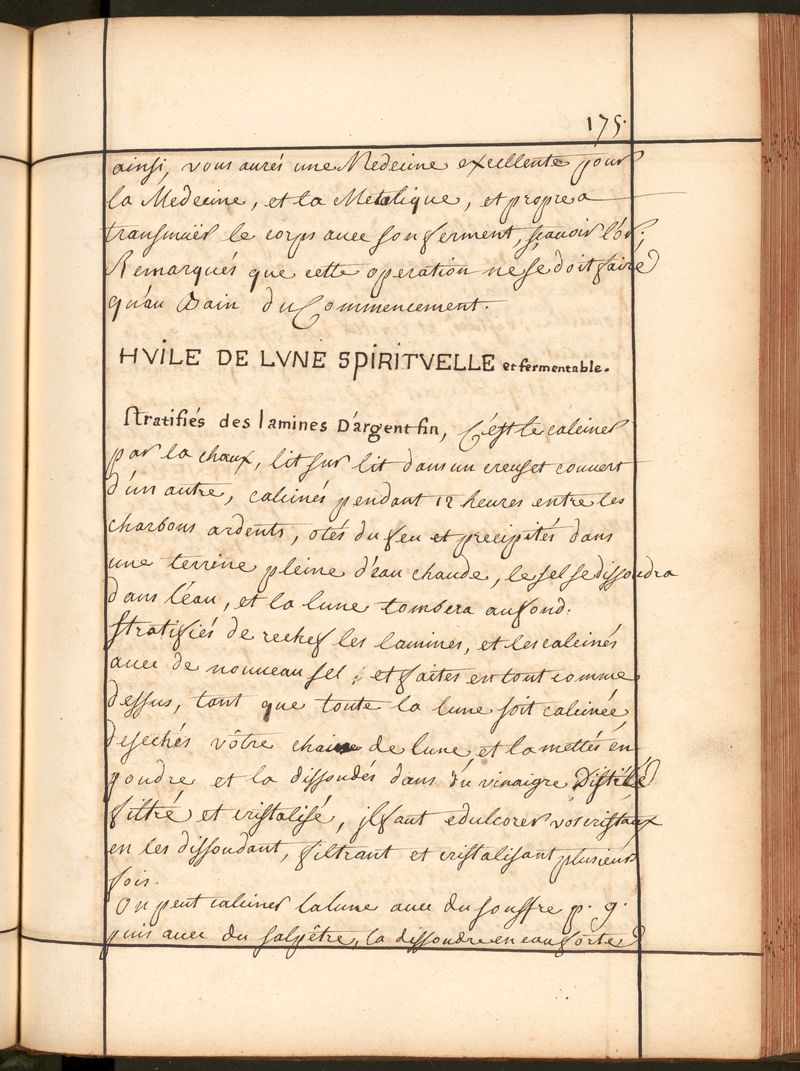 175.
ainsi, vous aurés une Medecine excellente pour
la Medecine, et la Metalique, et propre a
transmuër le corps avec son ferment, sçavoir l'ór;
Remarqués que cette operation ne se doit faire
qu'au Bain du Commencement.
HVILE DE LVNE SPIRITVELLE et fermentable.
Stratifiés des lamines D'argent fin, C'est le calciner
par la chaux, lit sur lit dans un creuset couvert
d'un autre, calcinés pendant 12 heures entre les
charbons ardents, otés du feu et precipités dans
une terrine pleine d'eau chaude, le sel se dissoudra
dans l'eau, et la lune tombera au fond:
stratifiés de rechef les lamines, et les calcinés
avec de nouveau sel, et faites en tout comme
dessus, tant que toute la lune soit calcinée,
desechés vôtre de lune et la mettés en
poudre et la dissoudés dans du vinaigre Distilé
filtré et cristalisé, il faut edulcorer vos cristaux
en les dissoudant, filtrant et cristalisant plusieurs
fois.
On peut calciner la lune avec du souffre p. g.
puis avec du salpêtre, la dissoudre en eau forte